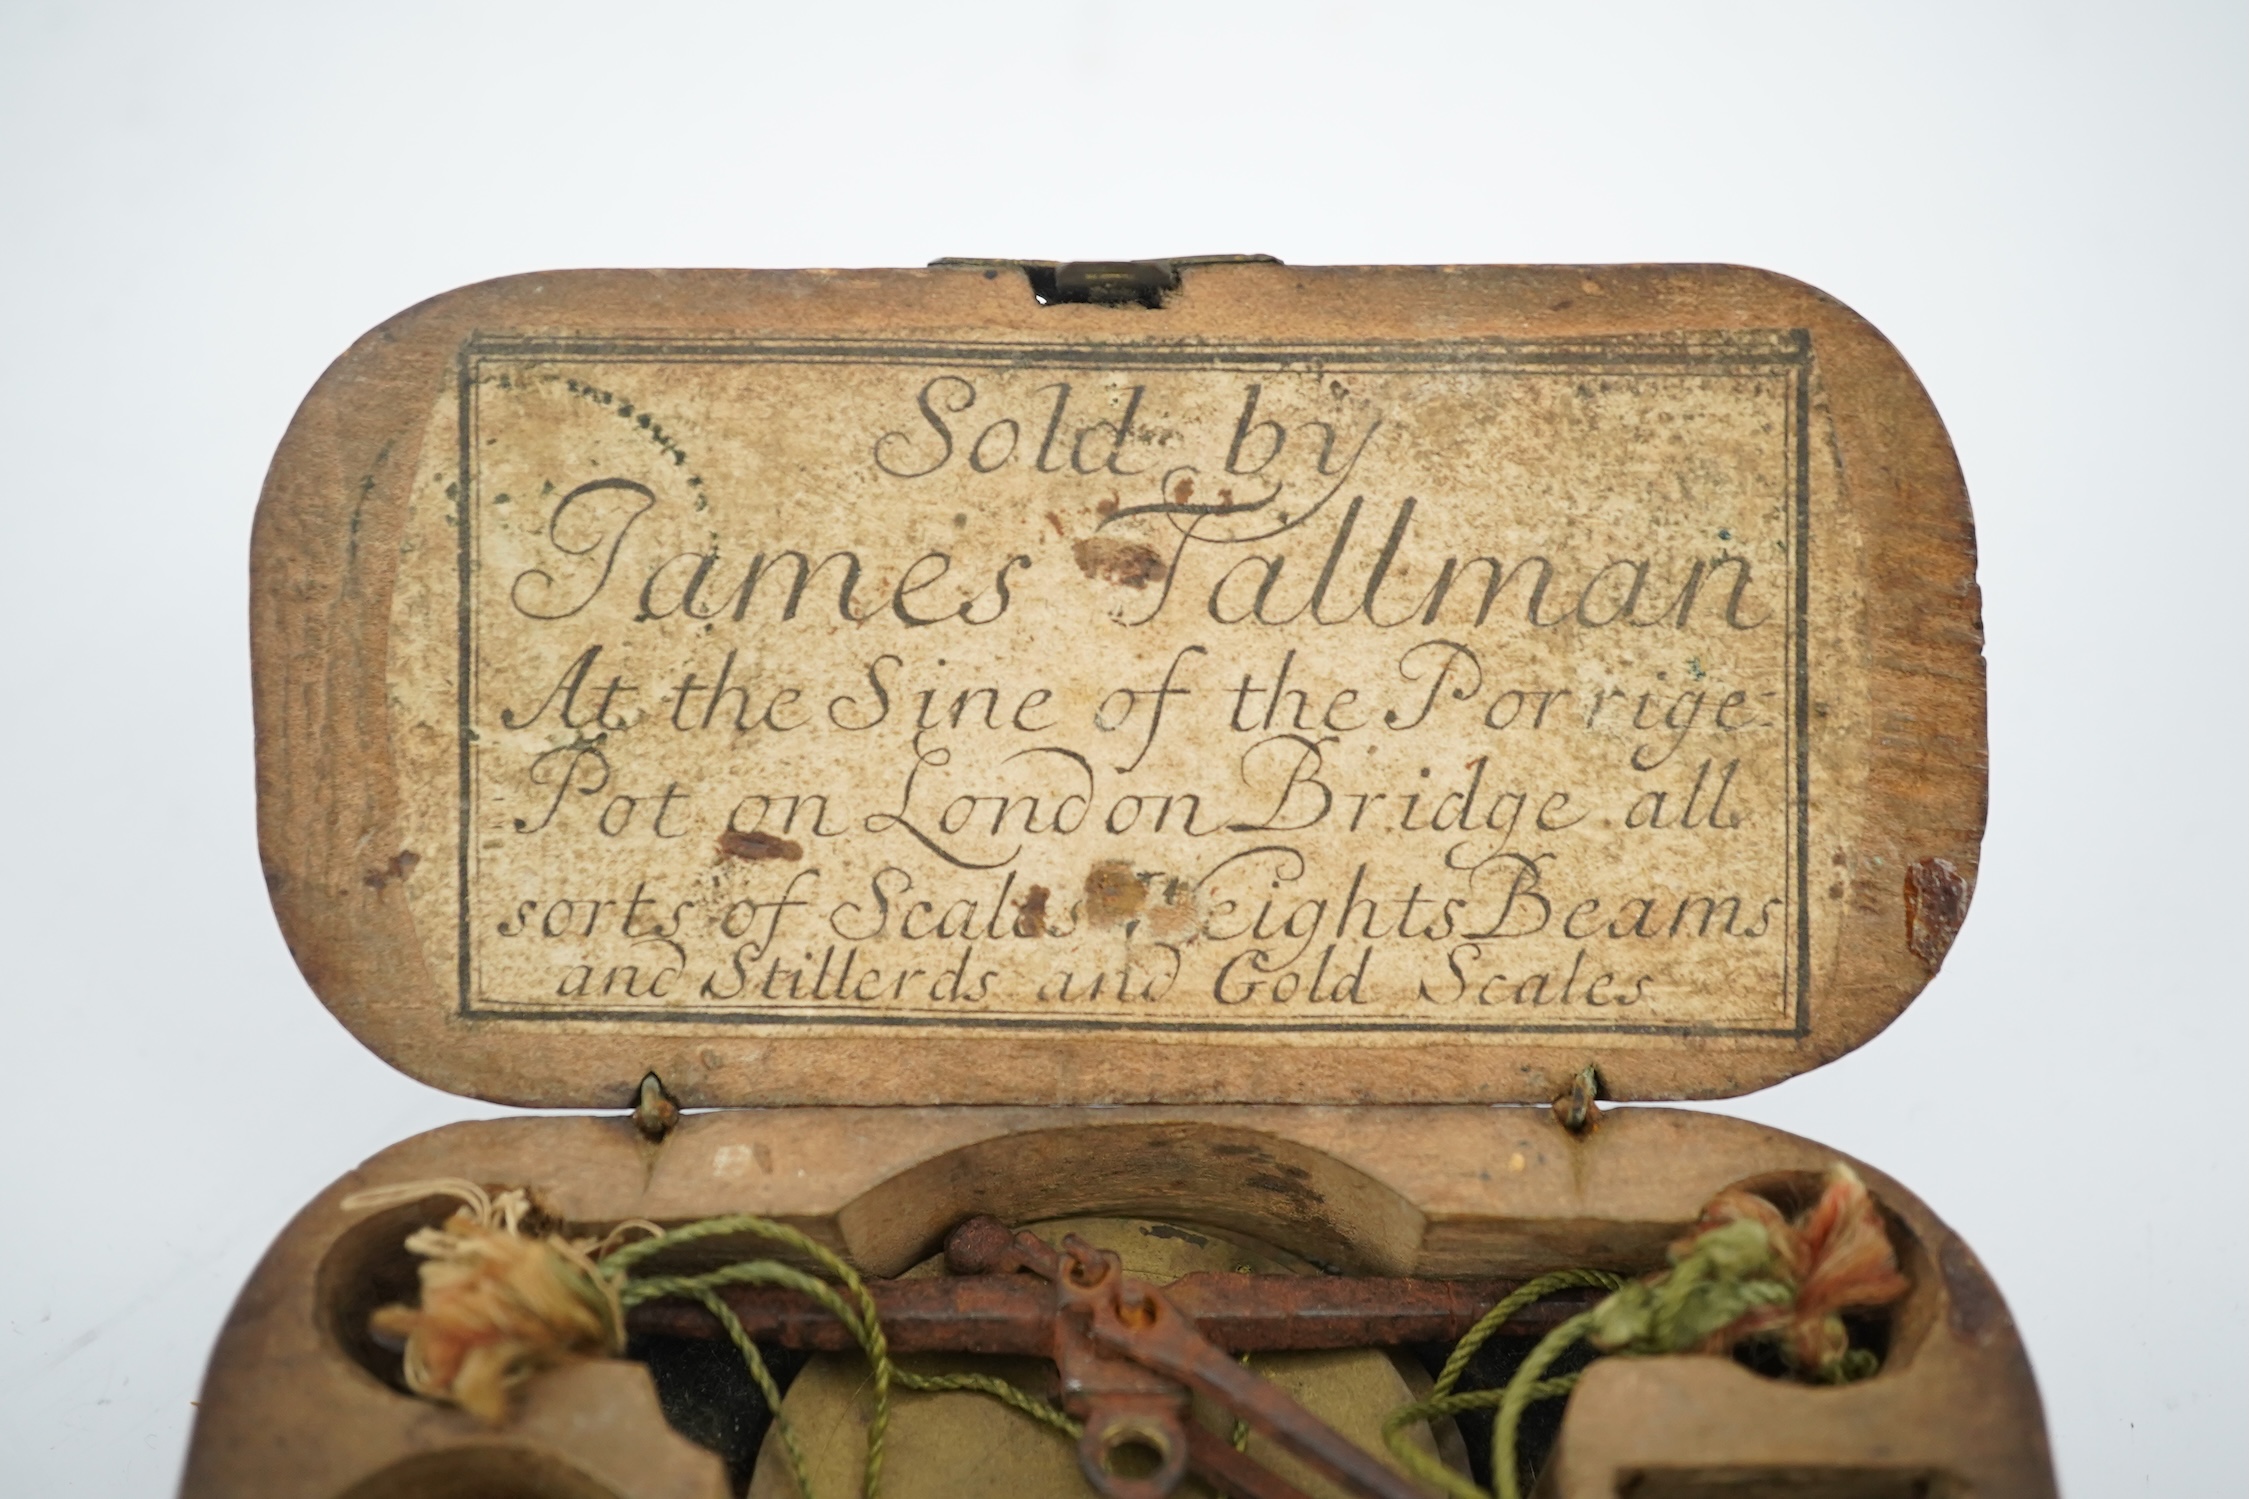 Sold by
James Tallman
At the Sine of the Porrige-
Pot on London Bridge all
sorts of Scales Weights Beams
and Stillerds and Gold Scales